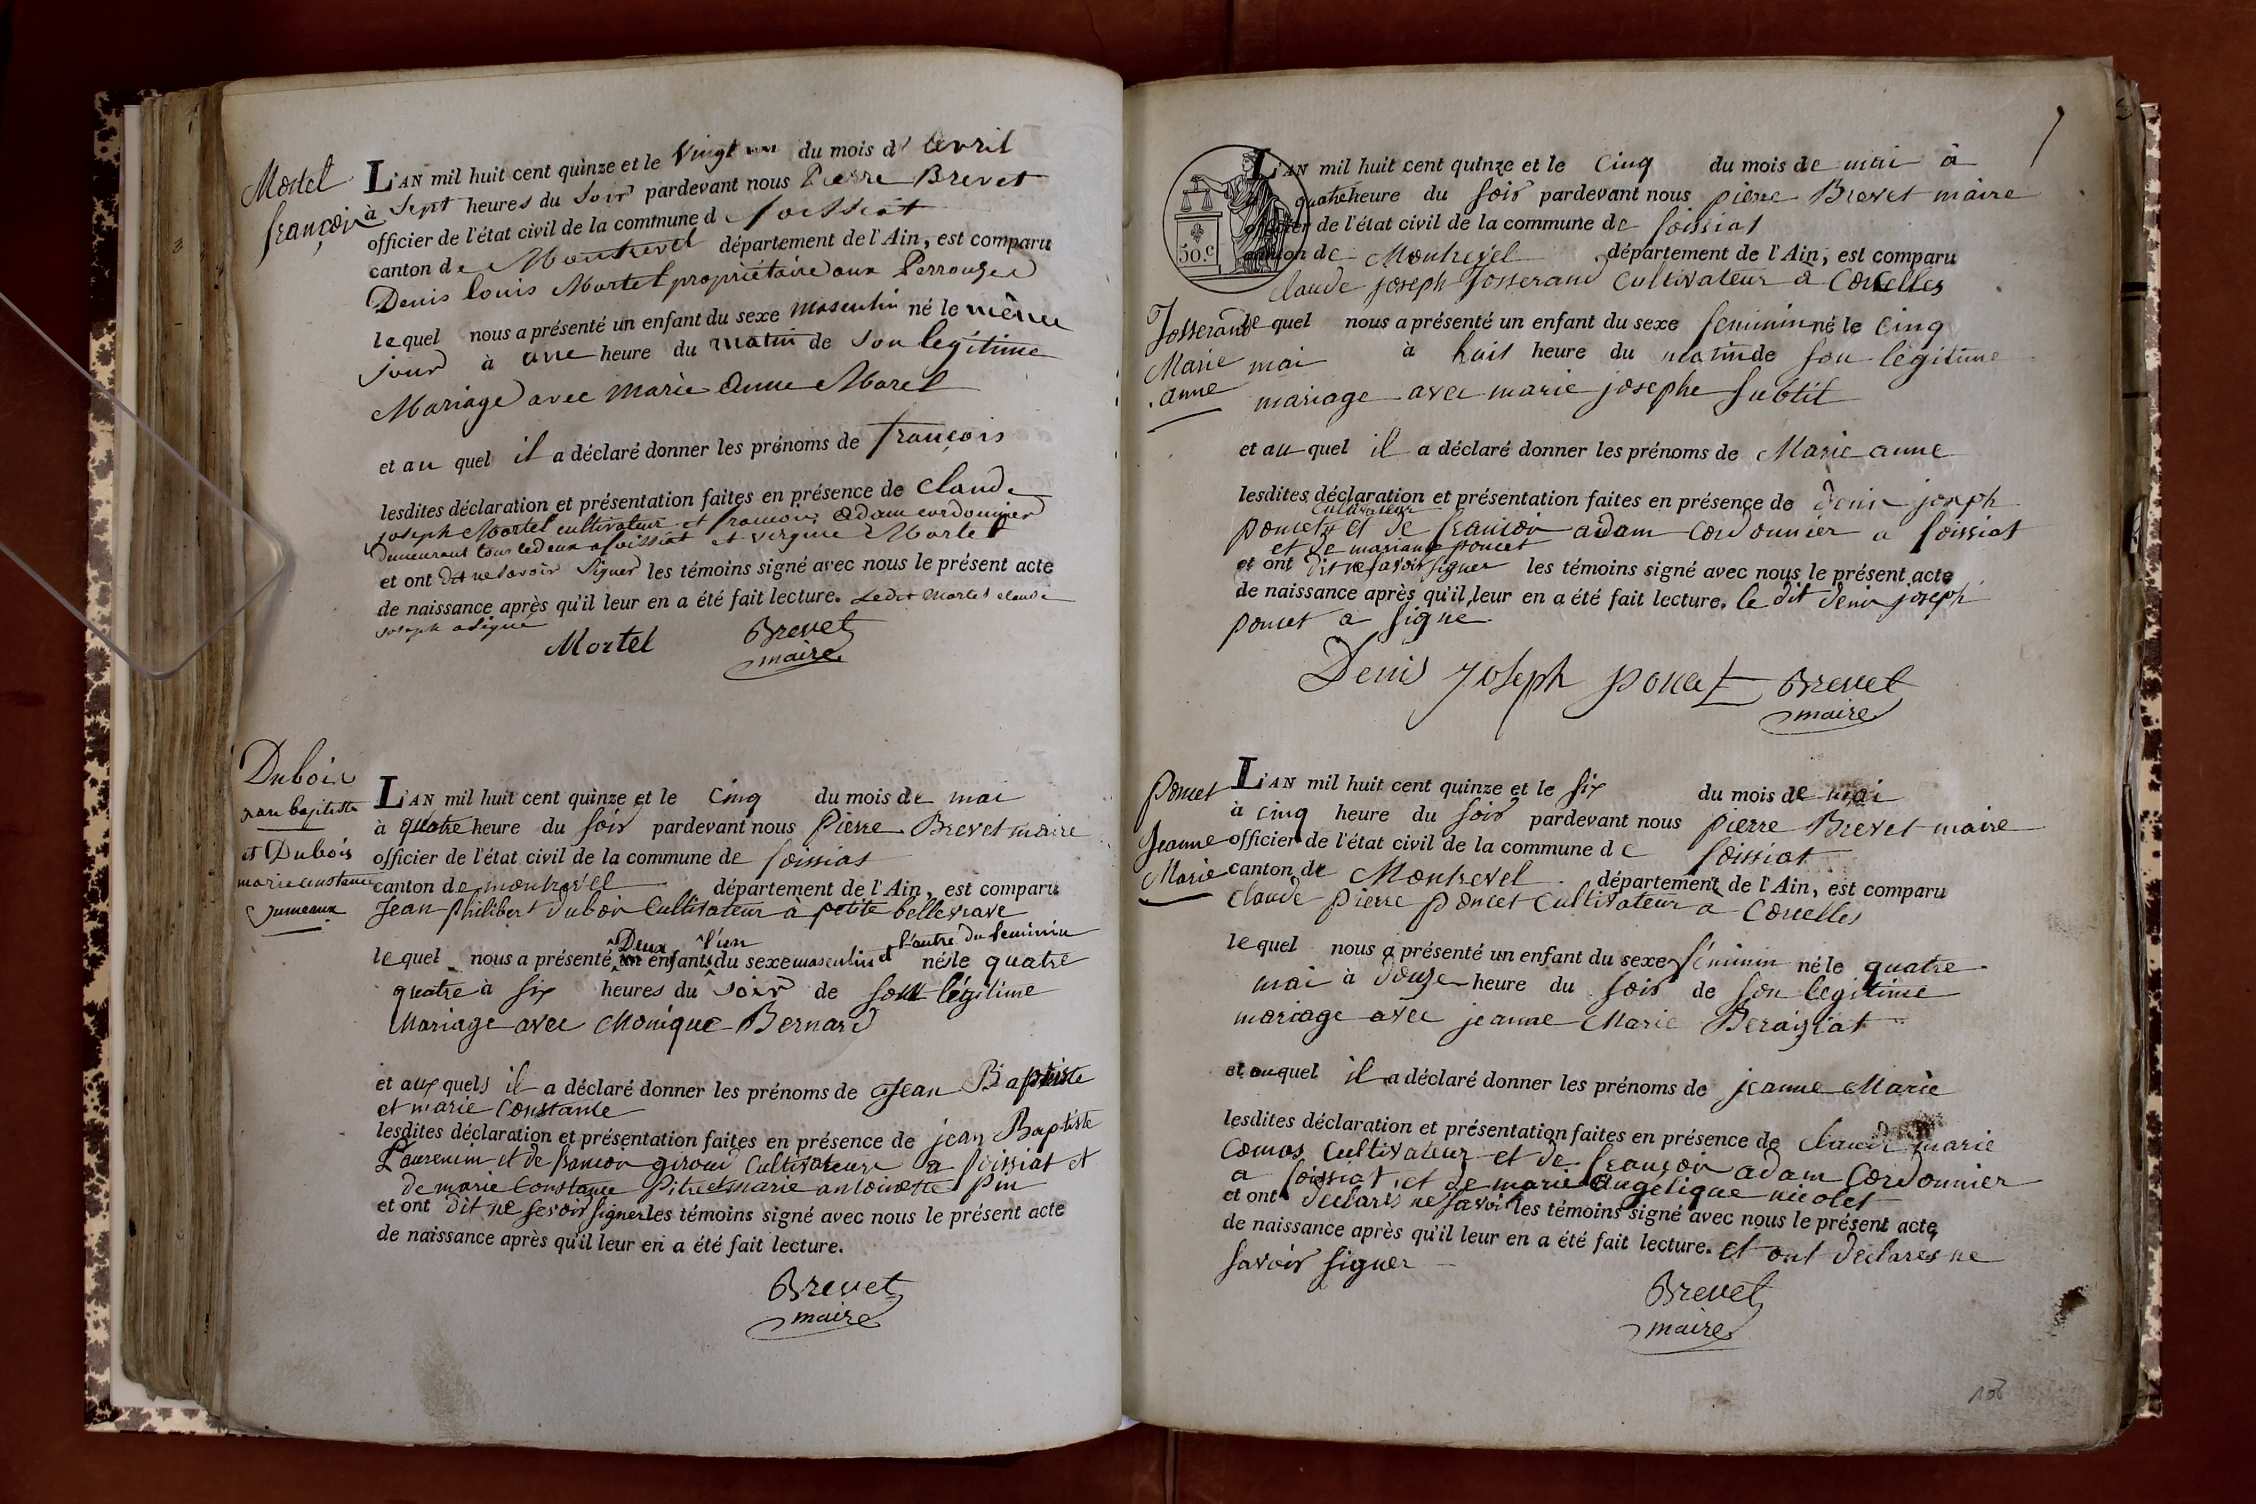 Mortel
françois
L'AN mil huit cent quinze et le vingt un du mois d'avril
à sept heures du soir pardevant nous Pierre Brevet
officier de l'état civil de la commune d foissiat
canton de Montrevel département de l'Ain, est comparu
Denis louis Mortel propriétaire aux Perrouzes
lequel nous a présenté un enfant du sexe masculin né le même
jour à une heure du matin de son légitime
Mariage avec marie anne Morel
et au quel il a déclaré donner les prénoms de françois
lesdites déclaration et présentation faites en présence de claude
joseph Mortel cultivateur et françois adam cordonnier
demeurant tous les deux a foissiat et virginie Mortel
et ont dit ne savoir signer les témoins signé avec nous le présent acte
de naissance après qu'il leur en a été fait lecture. Ledit Mortel claude
joseph a signé
Mortel Brevet
maire
Dubois
jean baptiste
et Dubois
marie constance
jumeaux
L'AN mil huit cent quinze et le cinq du mois de mai
à quatre heure du soir pardevant nous Pierre Brevet maire
officier de l'état civil de la commune de foissiat
canton de montrevel département de l'Ain, est comparu
Jean philibert dubois Cultivateur à petite bellevavre
Deux l'un l'autre du feminin
lequel nous a présenté un enfants du sexe masculin et nés le quatre
quatre à six heures du soir de son légitime
Mariage avec Monique Bernard
et aux quels il a déclaré donner les prénoms de Jean Baptiste
et marie constance
lesdites déclaration et présentation faites en présence de jean Baptiste
et de françois giroud Cultivateur a foissiat et
de marie constance Pitre et marie antoinette pin
et ont dit ne savoir signer les témoins signé avec nous le présent acte
de naissance après qu'il leur en a été fait lecture.
Brevet
maire
50.c
L'AN mil huit cent quinze et le Cinq du mois de mai à
quatre heure du soir pardevant nous pierre Brevet maire
officier de l'état civil de la commune de foissiat
canton de Montrevel département de l'Ain, est comparu
claude joseph Josserand Cultivateur à Corcelles
Josserand
Marie
anne
lequel nous a présenté un enfant du sexe feminin né le cinq
mai à huit heure du matin de son légitime
mariage avec marie josephe subtil
et au quel il a déclaré donner les prénoms de Marie anne
lesdites déclaration et présentation faites en présence de denis joseph
cultivateur
poncet et de françois adam cordonnier a foissiat
et de marianne poncet
et ont dit ne savoir signer les témoins signé avec nous le présent acte
de naissance après qu'il leur en a été fait lecture. le dit denis joseph
poncet a signe
Denis Joseph poncet Brevet
maire
poncet
Jeanne
Marie
L'AN mil huit cent quinze et le six du mois de mai
à cinq heure du soir pardevant nous pierre Brevet maire
officier de l'état civil de la commune de foissiat
canton de Montrevel département de l'Ain, est comparu
claude pierre poncet Cultivateur a Corcelles
lequel nous a présenté un enfant du sexe féminin né le quatre
mai à douze heure du soir de son légitime
mariage avec jeanne Marie
et auquel il a déclaré donner les prénoms de jeanne Marie
lesdites déclaration et présentation faites en présence de claude marie
comas Cultivateur et de françois adam Cordonnier
a foissiat et de marie angélique nicolet
et ont déclarés ne savoir les témoins signé avec nous le présent acte
de naissance après qu'il leur en a été fait lecture. et ont déclarés ne
savoir signer
Brevet
maire